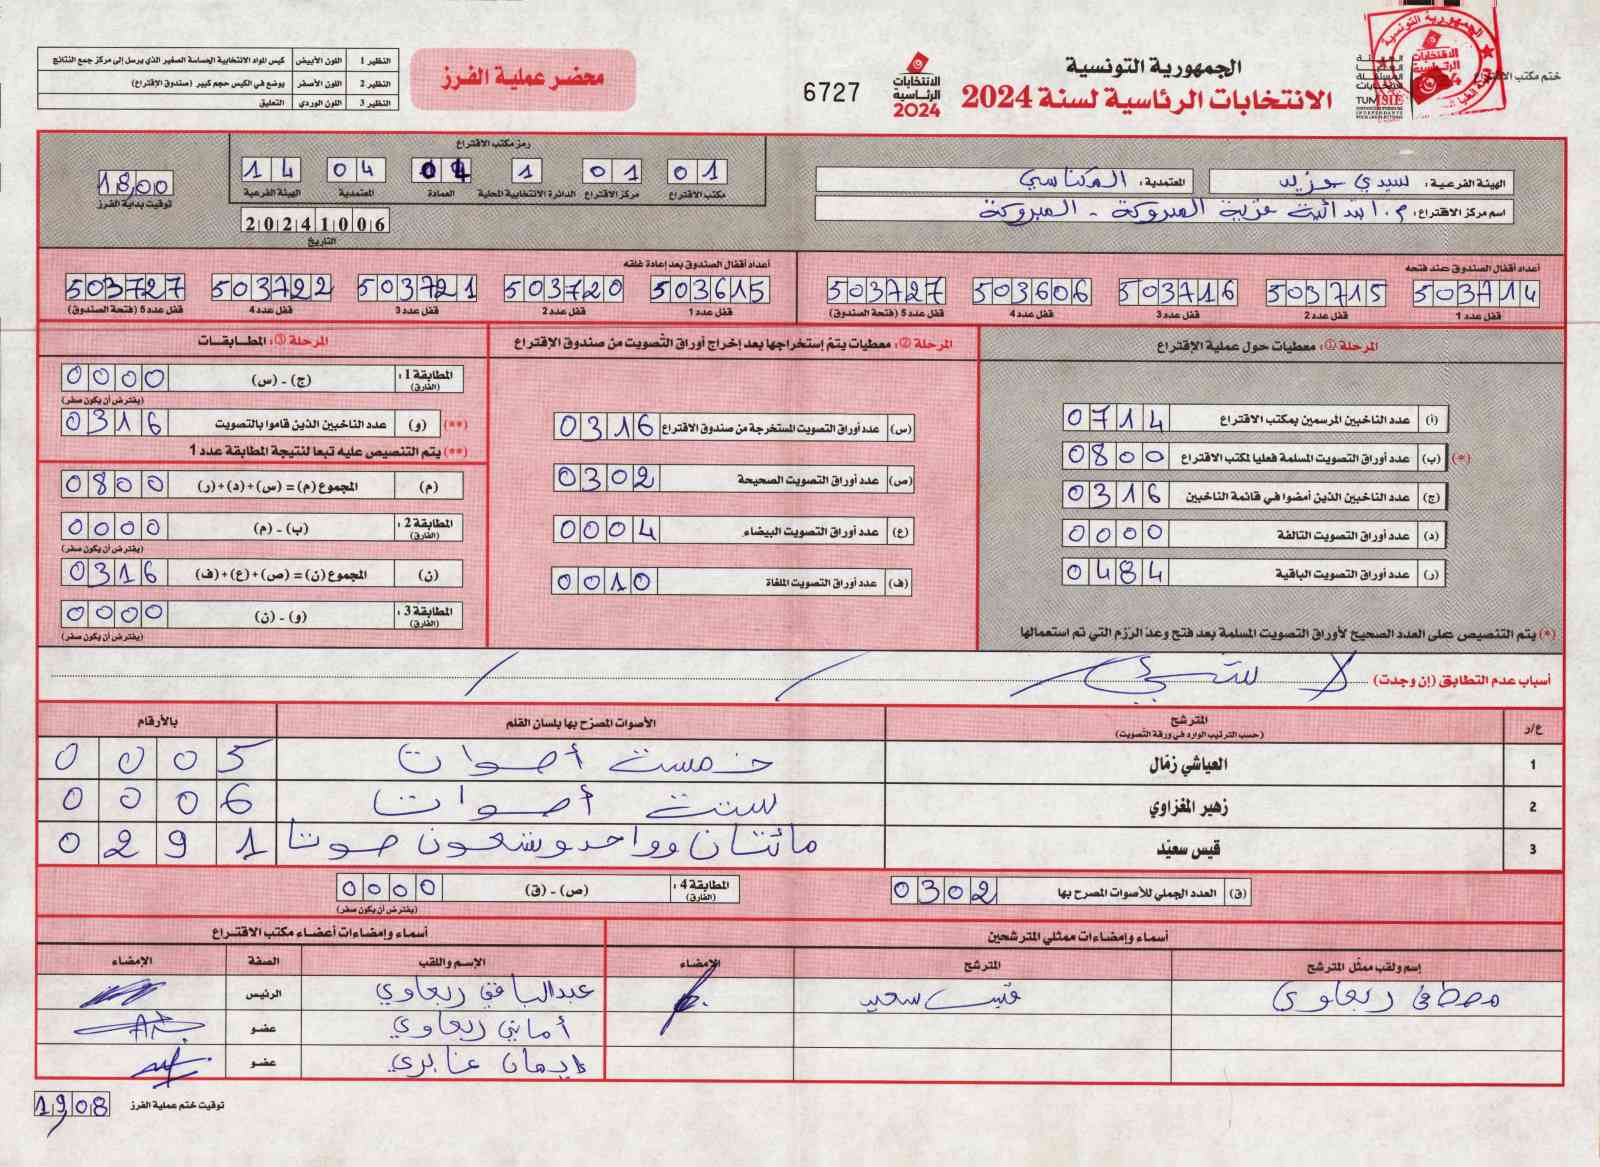 النظير 1 اللون الأبيض كيس المواد الانتخابية الحساسة الصغير الذي يرسل إلى مركز جمع النتائج
النظير 2 اللون الأصفر يوضع في الكيس حجم كبير (صندوق الإقتراع)
النظير 3 اللون الوردي التعليق
محضر عملية الفرز
6727
الانتخابات الرئاسية 2024
الجمهورية التونسية
الانتخابات الرئاسية لسنة 2024
ختم مكتب الاقتراع
الهيئة الفرعية: سيدي بوزيد
المعتمدية: المكناسي
اسم مركز الاقتراع: م. ابتدائية عزية المبروكة - المبروكة
رمز مكتب الاقتراع
14 04 04 1 01 01
الهيئة الفرعية المعتمدية العمادة الدائرة الانتخابية المحلية مركز الاقتراع مكتب الاقتراع
18,00
توقيت بداية الفرز
20241006
التاريخ
أعداد أقفال الصندوق عند فتحه
503714 503715 503716 503606 503727
قفل عدد 1 قفل عدد 2 قفل عدد 3 قفل عدد 4 قفل عدد 5 (فتحة الصندوق)
أعداد أقفال الصندوق بعد إعادة غلقه
503615 503720 503721 503722 503727
قفل عدد 1 قفل عدد 2 قفل عدد 3 قفل عدد 4 قفل عدد 5 (فتحة الصندوق)
المرحلة ①: معطيات حول عملية الإقتراع
(أ) عدد الناخبين المرسمين بمكتب الاقتراع 0714
(*) (ب) عدد أوراق التصويت المسلمة فعليا لمكتب الاقتراع 0800
(ج) عدد الناخبين الذين أمضوا في قائمة الناخبين 0316
(د) عدد أوراق التصويت التالفة 0000
(ر) عدد أوراق التصويت الباقية 0484
(*) يتم التنصيص على العدد الصحيح لأوراق التصويت المسلمة بعد فتح وعدّ الرّزم التي تم استعمالها
المرحلة ②: معطيات يتم إستخراجها بعد إخراج أوراق التصويت من صندوق الإقتراع
(س) عدد أوراق التصويت المستخرجة من صندوق الاقتراع 0316
(ص) عدد أوراق التصويت الصحيحة 0302
(ع) عدد أوراق التصويت البيضاء 0004
(ف) عدد أوراق التصويت الملغاة 0010
المرحلة ③: المطابقات
المطابقة 1: (الفارق) (ج) - (س) 0000
(يفترض أن يكون صفر)
(**) (و) عدد الناخبين الذين قاموا بالتصويت 0316
(**) يتم التنصيص عليه تبعا لنتيجة المطابقة عدد 1
(م) المجموع (م) = (س)+(د)+(ر) 0800
المطابقة 2: (الفارق) (ب) - (م) 0000
(يفترض أن يكون صفر)
(ن) المجموع (ن) = (ص)+(ع)+(ف) 0316
المطابقة 3: (الفارق) (و) - (ن) 0000
(يفترض أن يكون صفر)
أسباب عدم التطابق (إن وجدت) لا شيء
ع/د المترشح الأصوات المصرّح بها بلسان القلم بالأرقام
(حسب الترتيب الوارد في ورقة التصويت)
1 العياشي زمّال خمسة أصوات 0005
2 زهير المغزاوي ستة أصوات 0006
3 قيس سعيّد مائتان وواحد وتسعون صوتا 0291
(ق) العدد الجملي للأصوات المصرح بها 0302
المطابقة 4: (الفارق) (ص) - (ق) 0000
(يفترض أن يكون صفر)
أسماء وإمضاءات ممثلي المترشحين
إسم ولقب ممثّل المترشح المترشح الإمضاء
مصطفى ربعاوي قيس سعيد
أسماء وإمضاءات أعضاء مكتب الاقتراع
الإسم واللقب الصفة الإمضاء
عبدالباقي ربعاوي الرئيس
أماني ربعاوي عضو
إيمان عنابري عضو
توقيت ختم عملية الفرز 19,08